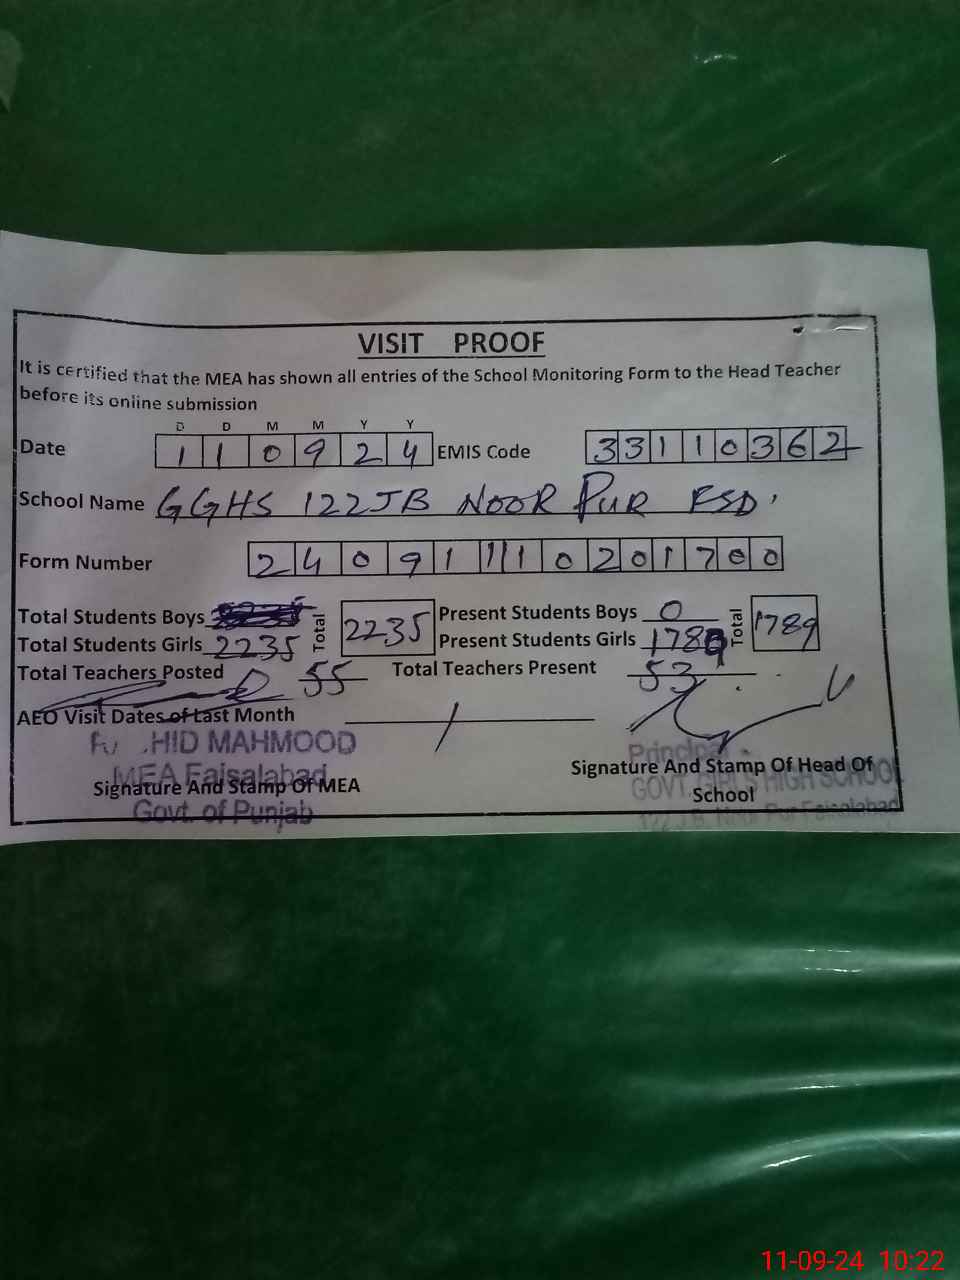 VISIT PROOF
It is certified that the MEA has shown all entries of the School Monitoring Form to the Head Teacher
before its online submission
D D M M Y Y
Date 1 1 0 9 2 4 EMIS Code 3 3 1 1 0 3 6 2
School Name GGHS 122JB NOOR PUR FSD
Form Number 2 4 0 9 1 1 1 0 2 0 1 7 0 0
Total Students Boys Total 2235 Present Students Boys 0 Total 1789
Total Students Girls 2235 Present Students Girls 1789
Total Teachers Posted 55 Total Teachers Present 53
AEO Visit Dates of Last Month /
HID MAHMOOD
MEA Faisalabad
Signature And Stamp Of MEA
Govt. of Punjab
Principal
Signature And Stamp Of Head Of
School
GOVT. GIRLS HIGH SCHOOL
122 J.B. Noor Pur Faisalabad
11-09-24 10:22